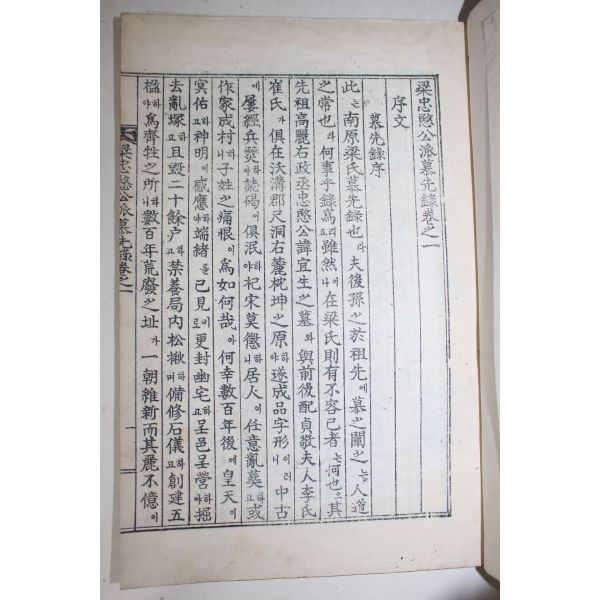 梁忠愍公派慕先錄卷之一
序文
慕先錄序
此는南原梁氏慕先錄也라夫後孫之於祖先에慕之闡之는人道
之常也라何事乎錄爲리요雖然이나在梁氏則有不容已者는何也오其
先祖高麗右政丞忠愍公諱宜生之墓와與前後配貞敬夫人李氏
崔氏가俱在沃溝郡尺洞右麓枕坤之原하야遂成品字形이러니中古
에屢經兵燹하야誌碣이俱泯하야杞宋莫懲하니居人이任意亂葬하고或
作家成村하니子姓之痛根이爲如何哉아何幸數百年後에皇天이
冥佑하고神明이感應하야端緖를已見키로更封幽宅하고呈邑呈營하야掘
去亂塚하고且毁二十餘户하고禁養局內松楸하며備修石儀하고創建五
楹하야爲齊牲之所하니數百年荒廢之址가一朝維新而其麗不億이
梁忠愍公派慕先錄卷之一
一